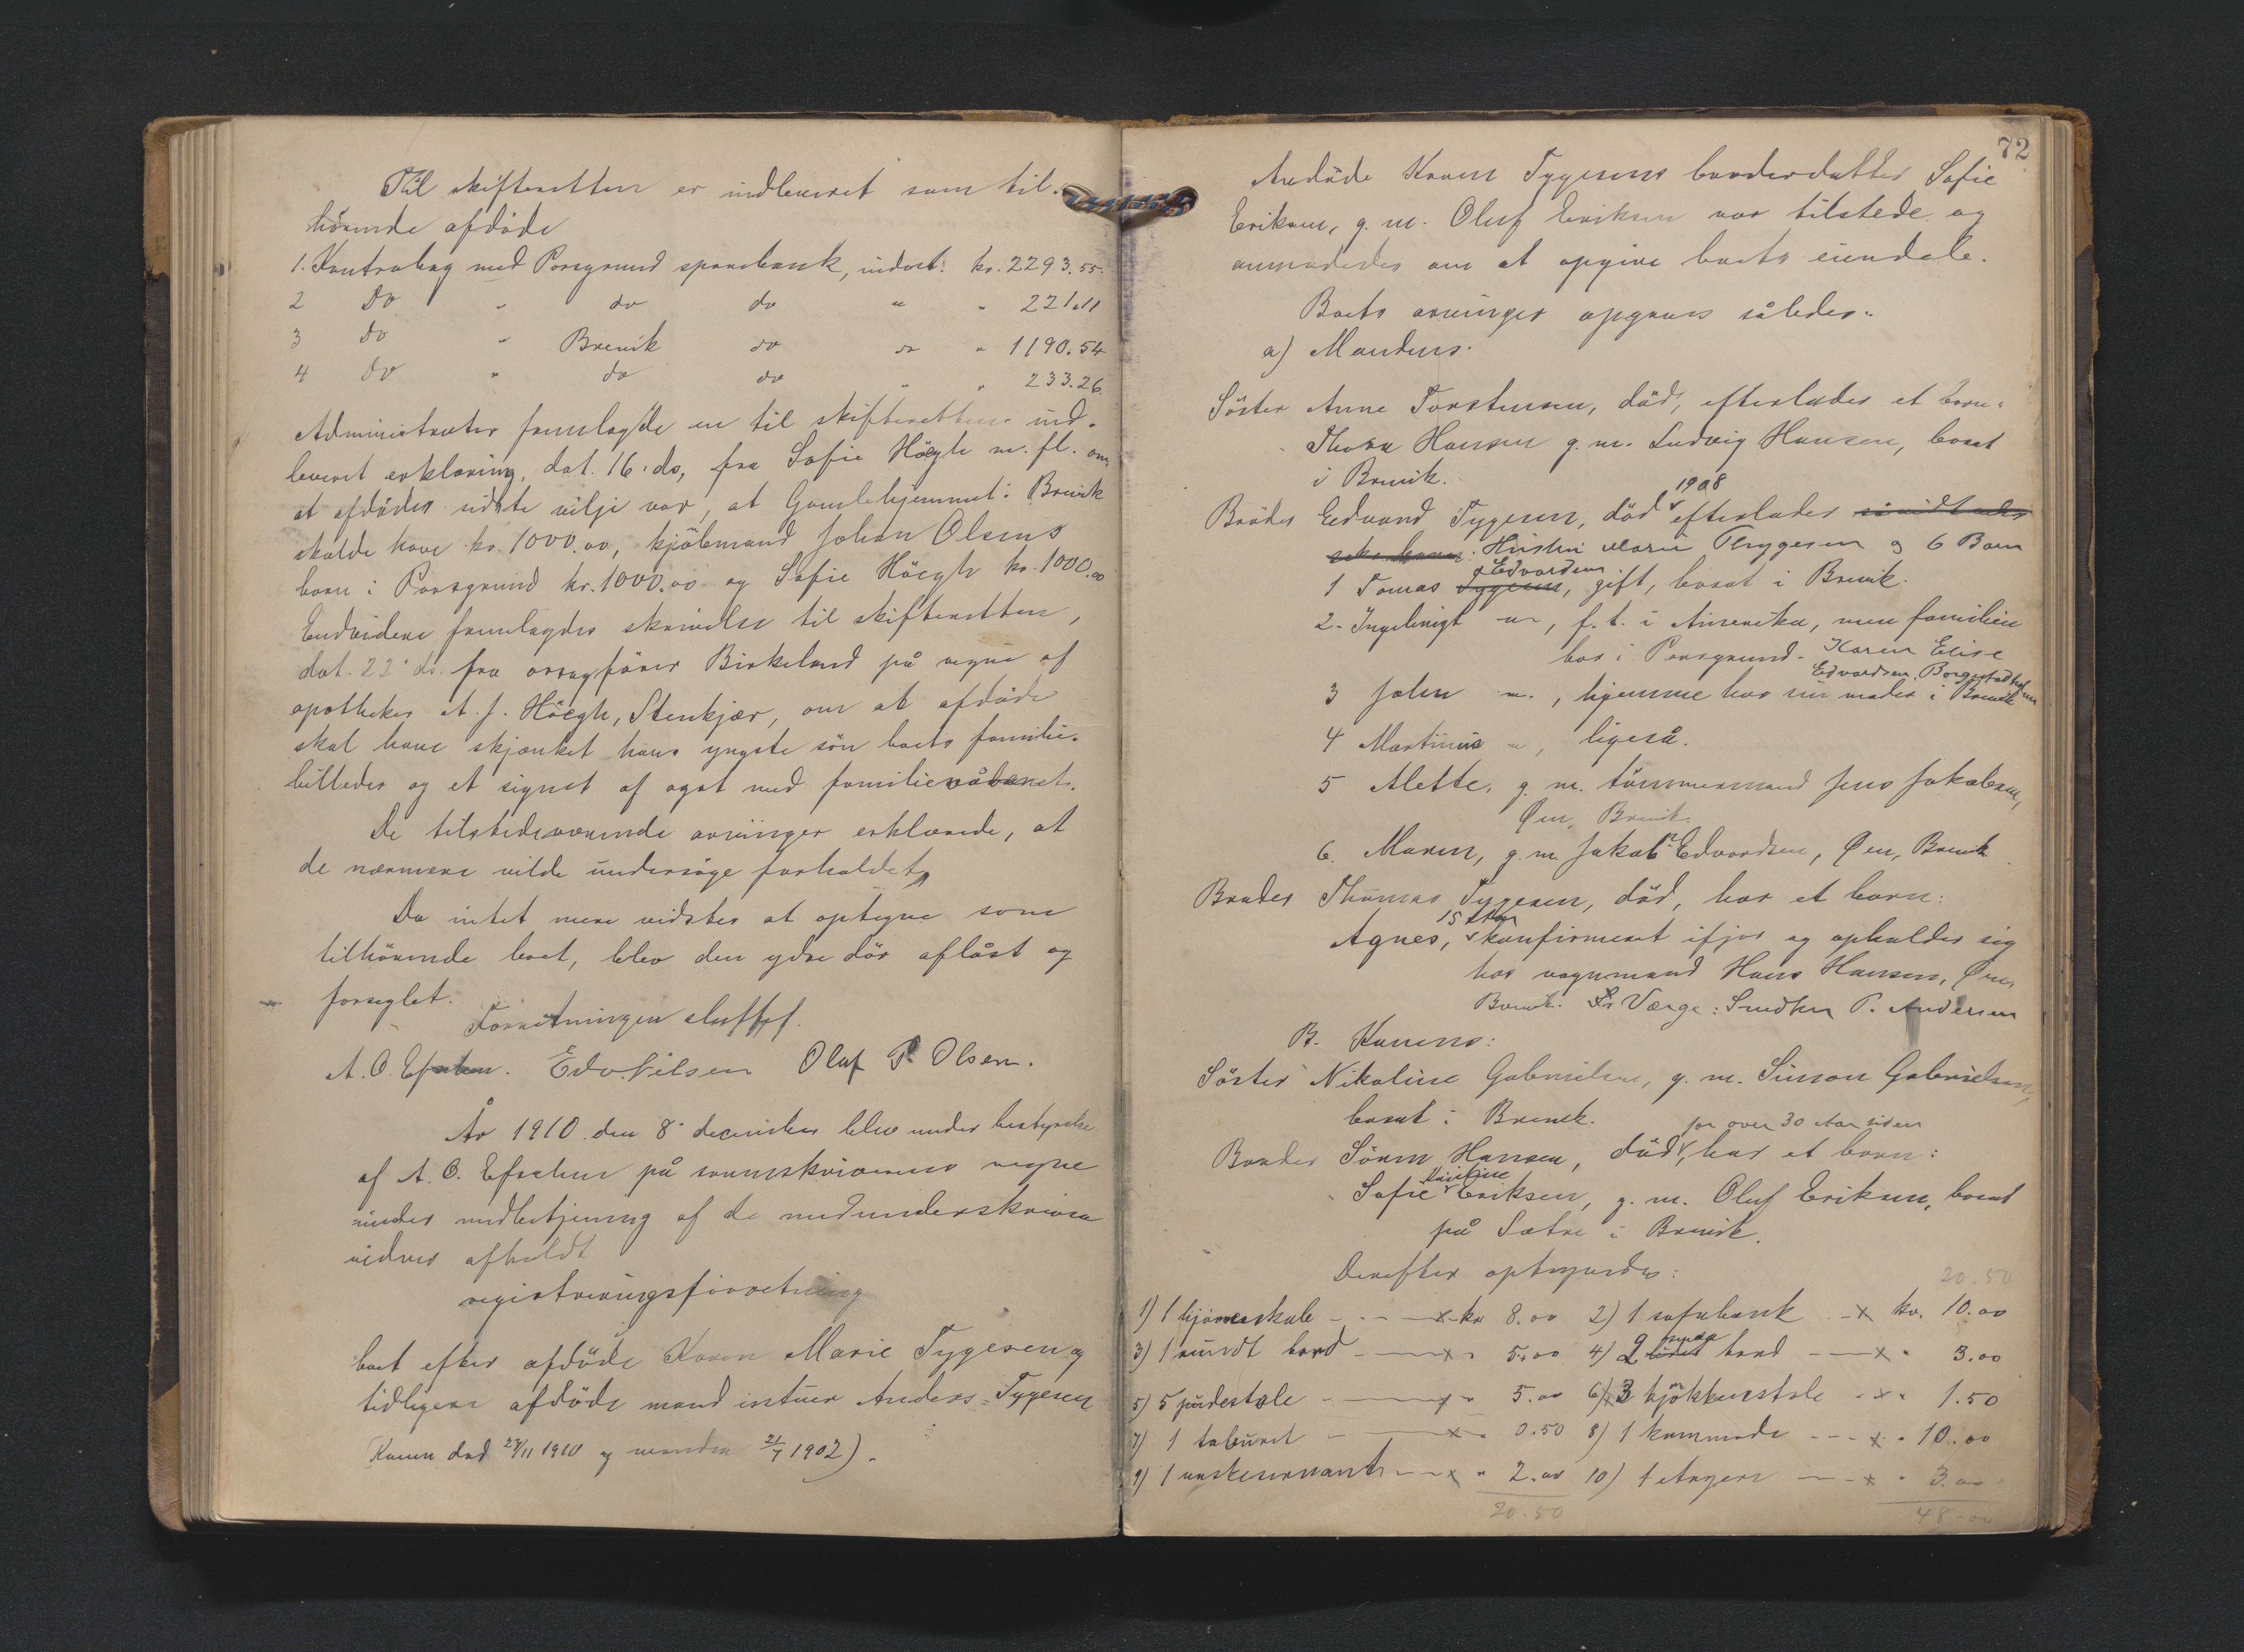 Til skifteretten er indleveret som til-
hörende afdöde
1. Kontrabog med Porsgrund sparebank, indest: kr. 2293.55.
2 Do " do do " " 221.11
3 do " Brevik do do " 1190.54
4 do " do do " " 233.26
Administrator fremlagde en til skifteretten ind-
leveret erklæring, dat. 16. ds, fra Sofie Höegh m. fl. om
at afdödes sidste vilje var, at Gamlehjemmet i Brevik
skulde have kr. 1000.00, kjöbmand Johan Olsens
barn i Porsgrund kr. 1000.00 og Sofie Höegh kr. 1000.00
Endvidere fremlagdes skrivelse til skifteretten,
dat. 22. ds. fra overretssagförer Birkeland på vegne af
apotheker A. J. Höegh, Stenkjær, om at afdöde
skal have skjænket hans yngste sön boets familie-
billeder og et signet af agat med familievåbenet.
De tilstedeværende arvinger erklærede, at
de nærmere vilde undersöge forholdet.
Da intet mere vidstes at optegne som
tilhörende boet, blev den ydre dör aflåst og
forseglet.
Forretningen sluttet.
A. O. Efsetun. Edv. Nilsen Oluf P. Olsen.
År 1910 den 8. december blev under bestyrelse
af A. O. Efsetun på sorenskriverens vegne
under medbetjening af de medunderskrevne
vidner afholdt
registreringsforretning
boet efter afdöde Karen Marie Tygesen og
tidligere afdöde mand Anders Tygesen
(Karen död 27/11 1910 og manden 21/7 1902).
72
Avdöde Karen Tygesens broderdatter Sofie
Eriksen, g. m. Oluf Eriksen var tilstede og
anmodedes om at opgive boets eiendele.
Boets arvinger opgaves således:
a) Mandens:
Söster Anne Torstensen, död, efterlader et barn:
Thora Hansen g. m. Ludvig Hansen, bosat
i Brevik.
1908
Broder Edvard Tygesen, död efterlader såvidt vides
seks barn: Hustru Marie Thygesen og 6 Barn
Edvardsen
1 Tomas Tygesen, gift, bosat i Brevik.
2. Ingebrigt " , f. t. i Amerika, men familien
bor i Porsgrund. Karen Elise
Edvardsen, Borgestad
3 John " , hjemme hos sin moder i Brevik
4 Martinus " , ligeså.
5 Mette, g. m. tömmermand Jens Jakobsen,
Øen, Brevik.
6. Maren, g. m. Jakob Edvardsen, Øen, Brevik
Broder Thomas Tygesen, död, har et barn:
15 Aar
Agnes, konfirmeret ifjor og opholder sig
hos vognmand Hans Hansen, Øen,
Brevik. Værge: Snedker P. Andersen
B. Karens:
Söster Nikoline Gabrielsen, g. m. Simon Gabrielsen,
bosat i Brevik.
for over 30 Aar siden
Broder Sören Hansen, död, har et barn:
Sofie Eriksen, g. m. Oluf Eriksen, bosat
på Sætre i Brevik.
Derefter optegnedes:
20.50
1) 1 hjörneskab - - - x kr 8.00 2) 1 sofabænk - x kr. 10.00
3) 1 rundt bord - x " 5.00 4) 2 smaa bord - x " 3.00
5) 5 pudestole - x " 5.00 6) 3 kjökkenstole - x " 1.50
7) 1 taburet - x " 0.50 8) 1 kommode - - - x " 10.00
9) 1 vaskeservant - x " 2.00 10) 1 etagere - x " 3.00
20.50 48.00